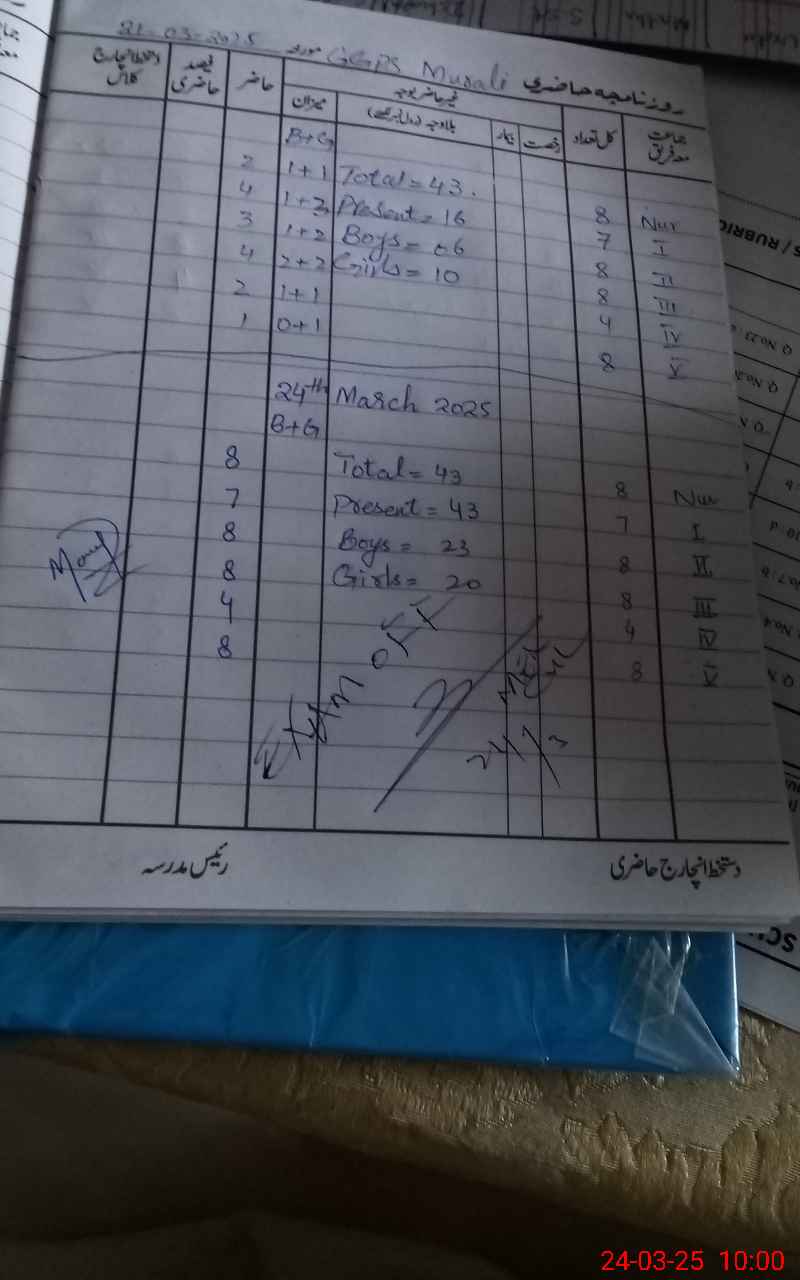 21-03-2025 مورخہ GGPS Murali روزنامچہ حاضری
جماعت معہ فریق کل تعداد غیر حاضر بوجہ حاضر فیصد حاضری دستخط انچارج کلاس
رخصت بیمار بلاوجہ (رول نمبر لکھئے) میزان
B+G
Nur 8 Total = 43. 1+1 2
I 7 Present = 16 1+3 4
II 8 Boys = 06 1+2 3
III 8 Girls = 10 2+2 4
IV 4 1+1 2
V 8 0+1 1
24th March 2025
B+G
Nur 8 Total = 43 8
I 7 Present = 43 7
II 8 Boys = 23 8
III 8 Girls = 20 8
IV 4 4
V 8 8
24/3
دستخط انچارج حاضری رئیس مدرسہ
S / RUBRIC
24-03-25 10:00